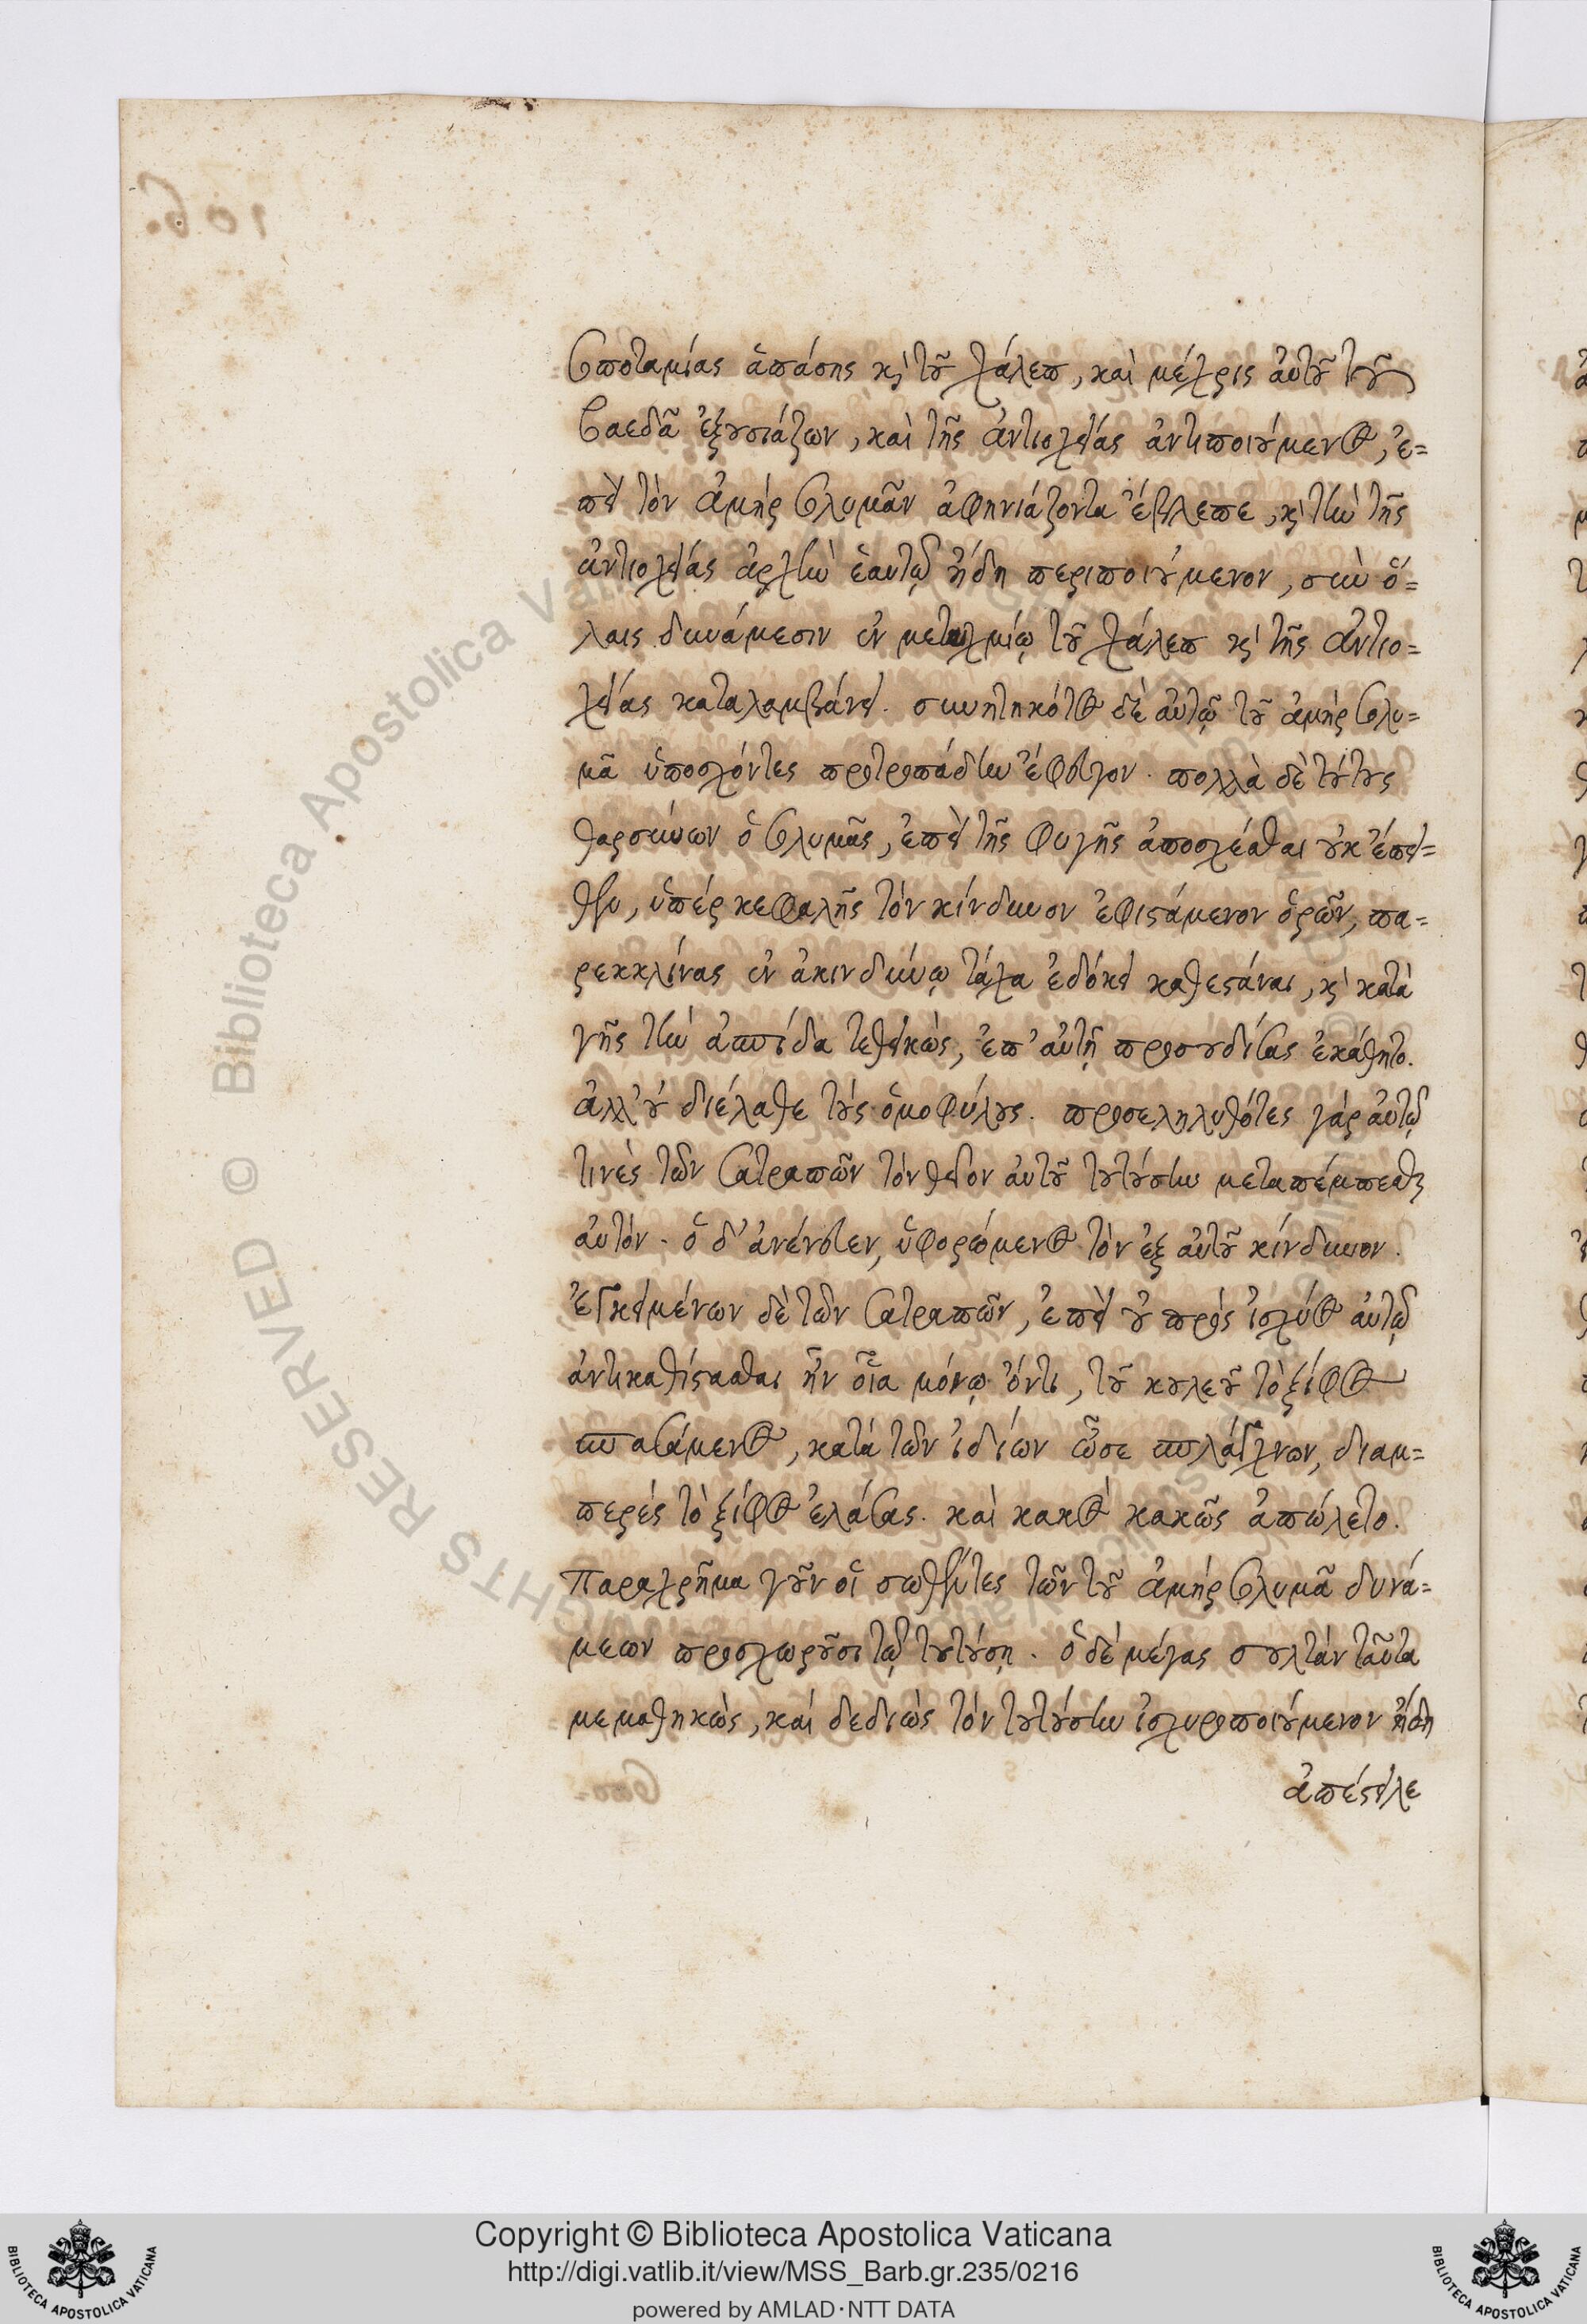 σοποταμίας ἁπάσης κ̀ τοῦ χάλεπ, καὶ μέχρις αὐτοῦ τοῦ
βαγδᾶ ἐξουσιάζων, καὶ τῆς ἀντιοχείας ἀντιποιούμενος, ἐ=
πεὶ τὸν ἀμὴρ σολυμᾶν ἀφηνιάζοντα ἔβλεπε, κ̀ τὴν τῆς
ἀντιοχείας ἀρχὴν ἑαυτῷ ἤδη περιποιούμενον, σὺν ὅ=
λαις δυνάμεσιν ἐν μεταιχμίῳ τοῦ χάλεπ κ̀ τῆς ἀντιο=
χείας καταλαμβάνει. συνηντηκότος δὲ αὐτῷ τοῦ ἀμὴρ σολυ=
μᾶ ὑποσχόντες προτροπάδην ἔφευγον. πολλὰ δὲ τούτους
θαρσύνων ὁ σολυμᾶς, ἐπεὶ τῆς φυγῆς ἀποσχέσθαι οὐκ ἔπει=
θεν, ὑπὲρ κεφαλῆς τὸν κίνδυνον ἐφιστάμενον ὁρῶν, πα=
ρεκκλίνας ἐν ἀκινδύνῳ τάχα ἐδόκει καθεστάναι, κ̀ κατὰ
γῆς τὴν ἀσπίδα τεθεικώς, ἐπ' αὐτῇ προσουδίσας ἐκάθητο.
ἀλλ' οὐ διέλαθε τοὺς ὁμοφύλους. προσεληλυθότες γὰρ αὐτῷ
τινὲς τῶν σατραπῶν τὸν θεῖον αὐτοῦ τουτούσην μεταπέμπεσθαι
αὐτόν. ὁ δ' ἀνένευεν, ὑφορώμενος τὸν ἐξ αὐτοῦ κίνδυνον.
ἐγκειμένων δὲ τῶν σατραπῶν, ἐπεὶ οὐ πρὸς ἰσχύος αὐτῷ
ἀντικαθίστασθαι ἦν οἷα μόνῳ ὄντι, τοῦ κουλεοῦ τὸ ξίφος
σπασάμενος, κατὰ τῶν ἰδίων ὦσε σπλάγχνων, διαμ=
περὲς τὸ ξίφος ἐλάσας. καὶ κακὸς κακῶς ἀπώλετο.
Παραχρῆμα γοῦν οἱ σωθέντες τῶν τοῦ ἀμὴρ σολυμᾶ δυνά=
μεων προσχωροῦσι τῷ τουτούσῃ. ὁ δὲ μέγας σουλτὰν ταῦτα
μεμαθηκώς, καὶ δεδιὼς τὸν τουτούσην ἰσχυροποιούμενον ἤδη
ἀπέστειλε
Copyright © Biblioteca Apostolica Vaticana
http://digi.vatlib.it/view/MSS_Barb.gr.235/0216
powered by AMLAD·NTT DATA